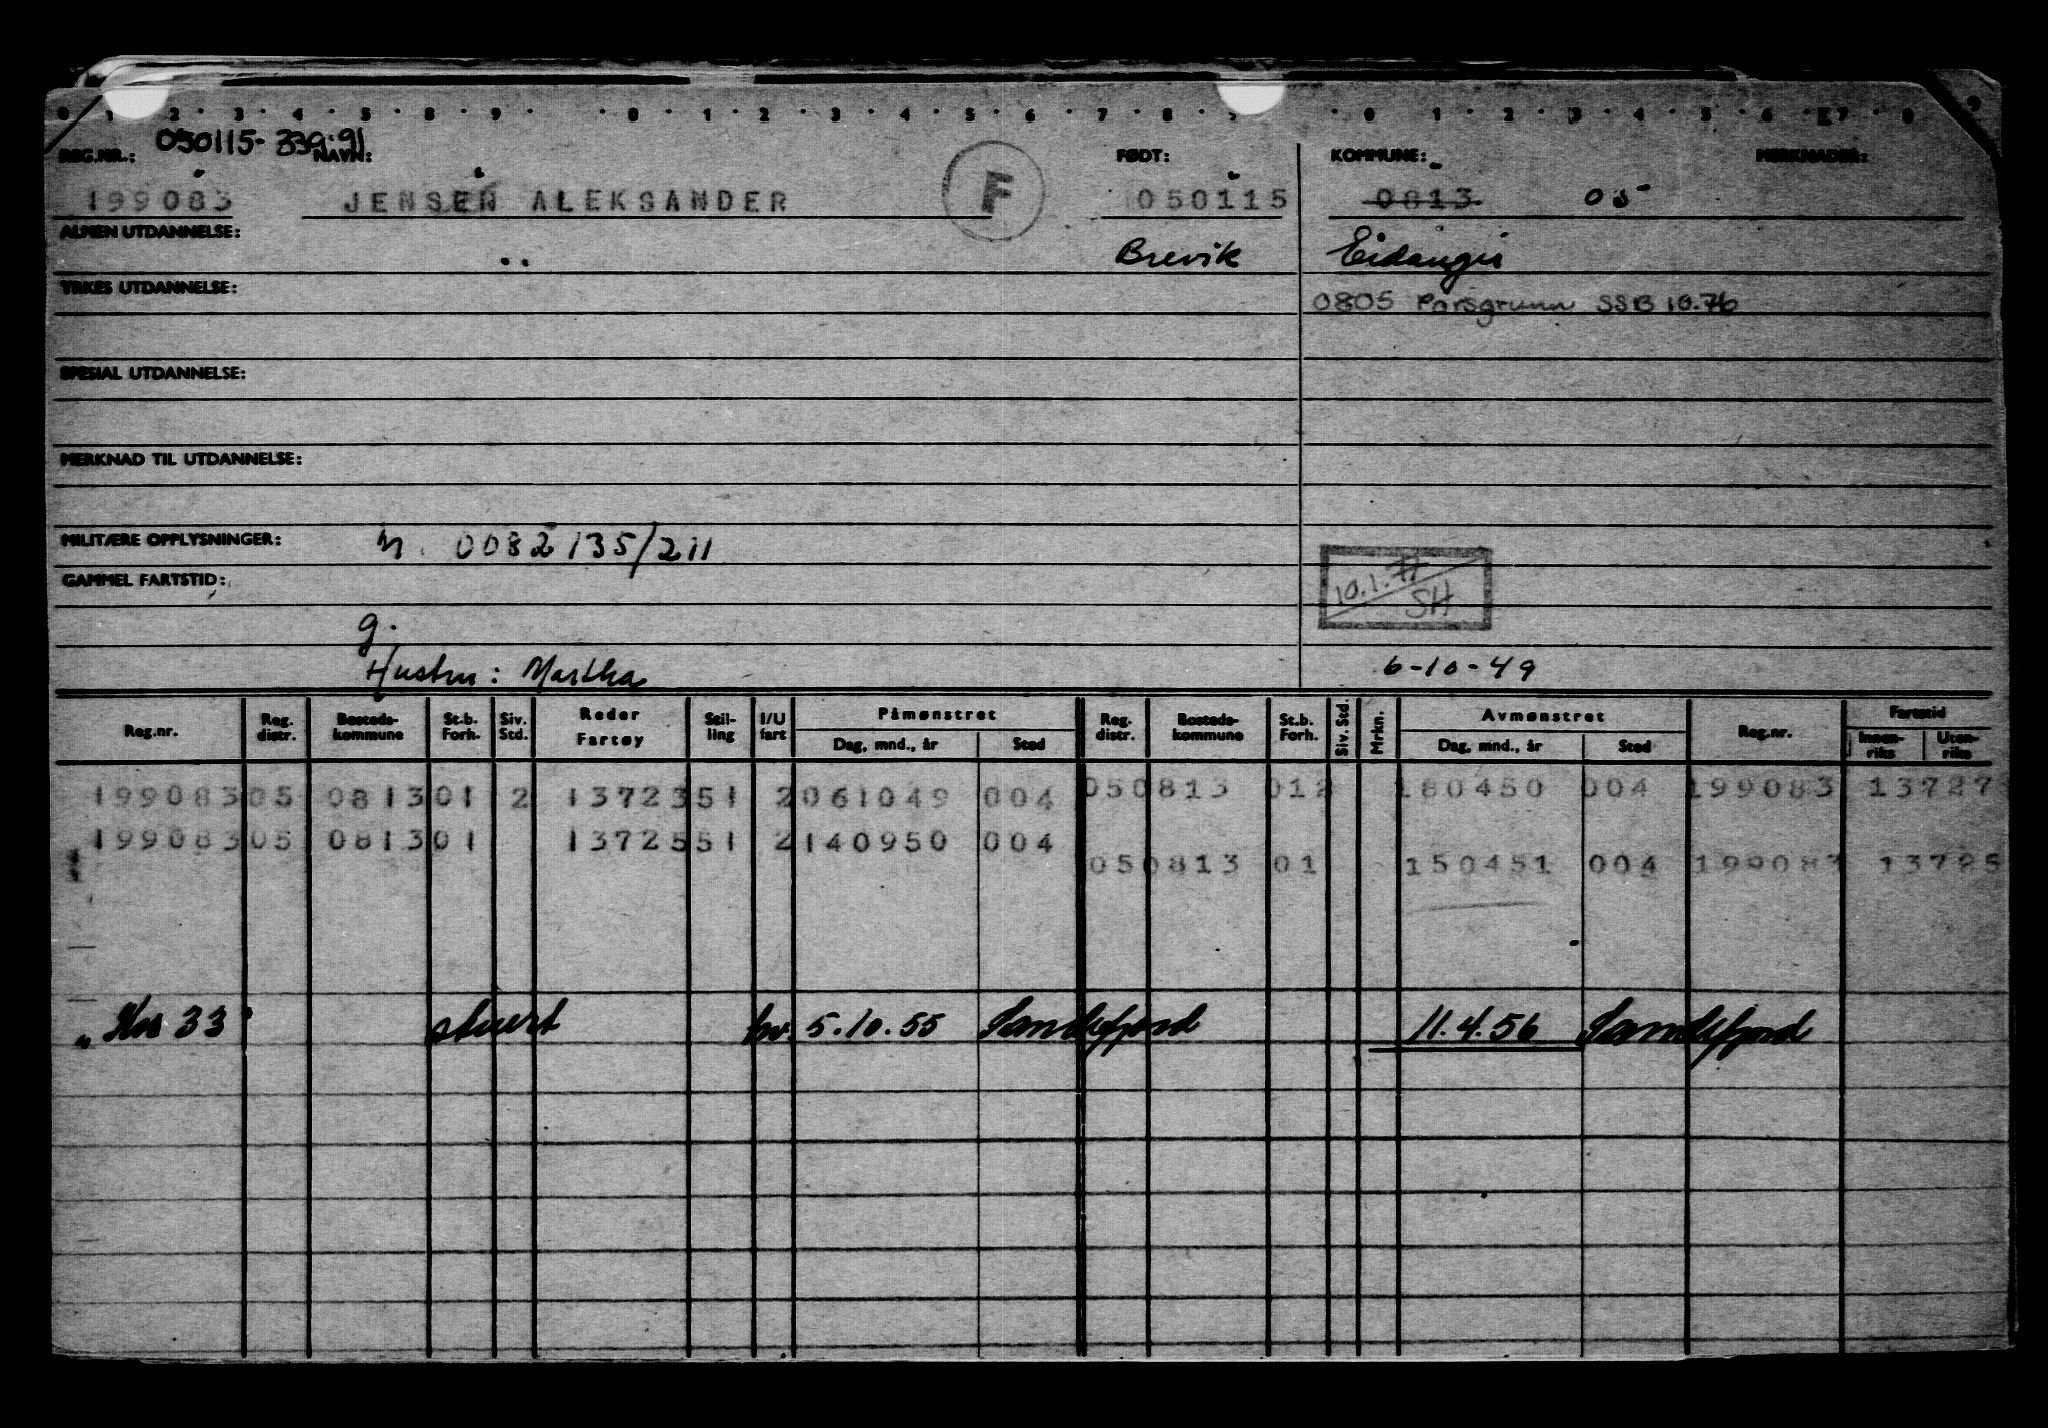 0 1 2 · 3 · 4 · 5 · 8 · 9 · · 0 · 1 · 2 · 3 · 4 · 5 · 6 · 7 · 8 · · 0 · 1 · 2 · 3 · 4 · 5 · 6 · 7 · 8 9
REG.NR.: 050115- 339.91 NAVN: FØDT: KOMMUNE: MERKNADER:
199083 JENSEN ALEKSANDER F 050115 0813 05
ALMEN UTDANNELSE: Brevik Eidanger
YRKES UTDANNELSE: 0805 Porsgrunn SSB 10.76
SPESIAL UTDANNELSE:
MERKNAD TIL UTDANNELSE:
MILITÆRE OPPLYSNINGER: M. 0082135/211
GAMMEL FARTSTID: 10.1.77 SH
g.
Hustru: Martha 6-10-49
Reg.nr. Reg. distr. Bosteds-kommune St.b. Forh. Siv. Std. Reder Fartøy Stil-ling I/U fart Påmønstret Dag, mnd., år Sted Reg. distr. Bosteds-kommune St.b. Forh. Siv. Std. Mrkn. Avmønstret Dag, mnd., år Sted Reg.nr. Fartstid Innen-riks Uten-riks
199083 05 0813 01 2 13723 51 2 061049 004 05 0813 01 2 180450 004 199083 13727
199083 05 0813 01 13725 51 2 140950 004
05 0813 01 150451 004 199083 13725
" Kos 33" stuert hv. 5.10.55 Sandefjord 11.4.56 Sandefjord